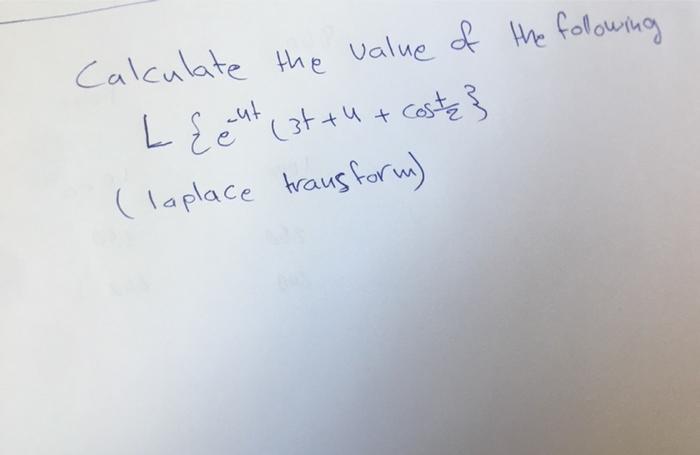 Calculate the value of the following
L {e^-4t (3t + 4 + cos t/2 }
( laplace transform)